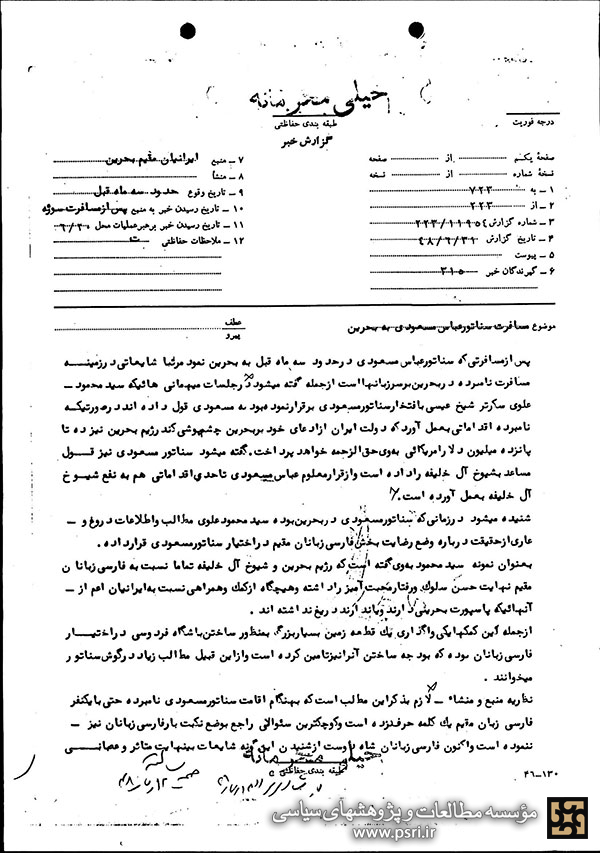 خیلی محرمانه
طبقه بندی حفاظتی
گزارش خبر
درجه فوریت
صفحه یکم از صفحه
نسخه شماره از نسخه
۱ – به ۷۲۳
۲ – از ۲۲۳
۳ – شماره گزارش ۲۲۳/۱۱۹۵۴
۴ – تاریخ گزارش ۴۸/۶/۳۱
۵ – پیوست
۶ – گیرندگان خبر ۳۱۵
۷ – منبع ایرانیان مقیم بحرین
۸ – منشأ
۹ – تاریخ وقوع حدود سه ماه قبل
۱۰ – تاریخ رسیدن خبر به منبع پس از مسافرت سوژه
۱۱ – تاریخ رسیدن خبر برهبر عملیات محل ۶/۲۰
۱۲ – ملاحظات حفاظتی
موضوع مسافرت سناتور عباس مسعودی به بحرین
عطف
پیرو
پس از مسافرتی که سناتور عباس مسعودی در حدود سه ماه قبل به بحرین نمود مرتبا شایعاتی در زمینه
مسافرت نامبرده در بحرین بر سر زبانها است از جمله گفته میشود در جلسات میهمانی هائیکه سید محمود –
علوی سکرتر شیخ عیسی بافتخار سناتور مسعودی برقرار نموده بود به مسعودی قول داده اند در صورتیکه
نامبرده اقداماتی بعمل آورد که دولت ایران از ادعای خود بر بحرین چشم پوشی کند رژیم بحرین نیز ده تا
پانزده میلیون دلار امریکائی به وی حق الزحمه خواهد پرداخت. گفته میشود سناتور مسعودی نیز قول
مساعد بشیوخ آل خلیفه را داده است و از قرار معلوم عباس مسعودی تا حدی اقداماتی هم به نفع شیوخ
آل خلیفه بعمل آورده است.
شنیده میشود در زمانی که سناتور مسعودی در بحرین بوده سید محمود علوی مطالب و اطلاعات دروغ و –
عاری از حقیقت در باره وضع رضایت بخش فارسی زبانان مقیم در اختیار سناتور مسعودی قرار داده.
بعنوان نمونه سید محمود بوی گفته است که رژیم بحرین و شیوخ آل خلیفه تماما نسبت به فارسی زبانان
مقیم نهایت حسن سلوک و رفتار محبت آمیز را داشته و هیچگاه از کمک و همراهی نسبت به ایرانیان اعم از –
آنهائیکه پاسپورت بحرینی دارند و یا ندارند دریغ نداشته اند.
از جمله این کمکها یکی واگذاری یک قطعه زمین بسیار بزرگ بمنظور ساختن باشگاه فردوسی در اختیار
فارسی زبانان بوده که بودجه ساختن آنرا نیز تامین کرده است و از این قبیل مطالب زیاد در گوش سناتور
میخوانند.
نظریه منبع و منشاء – لازم بذکر این مطلب است که بهنگام اقامت سناتور مسعودی نامبرده حتی با یکنفر
فارسی زبان مقیم یک کلمه حرف نزده است و کوچکترین سئوالی راجع بوضع نکبت بار فارسی زبانان نیز –
ننموده است و اکنون فارسی زبانان شاه دوست از شنیدن این گونه شایعات بینهایت متاثر و عصبانی
خیلی محرمانه
طبقه بندی حفاظتی
۴۶–۱۳۰
مؤسسه مطالعات و پژوهشهای سیاسی
www.psri.ir